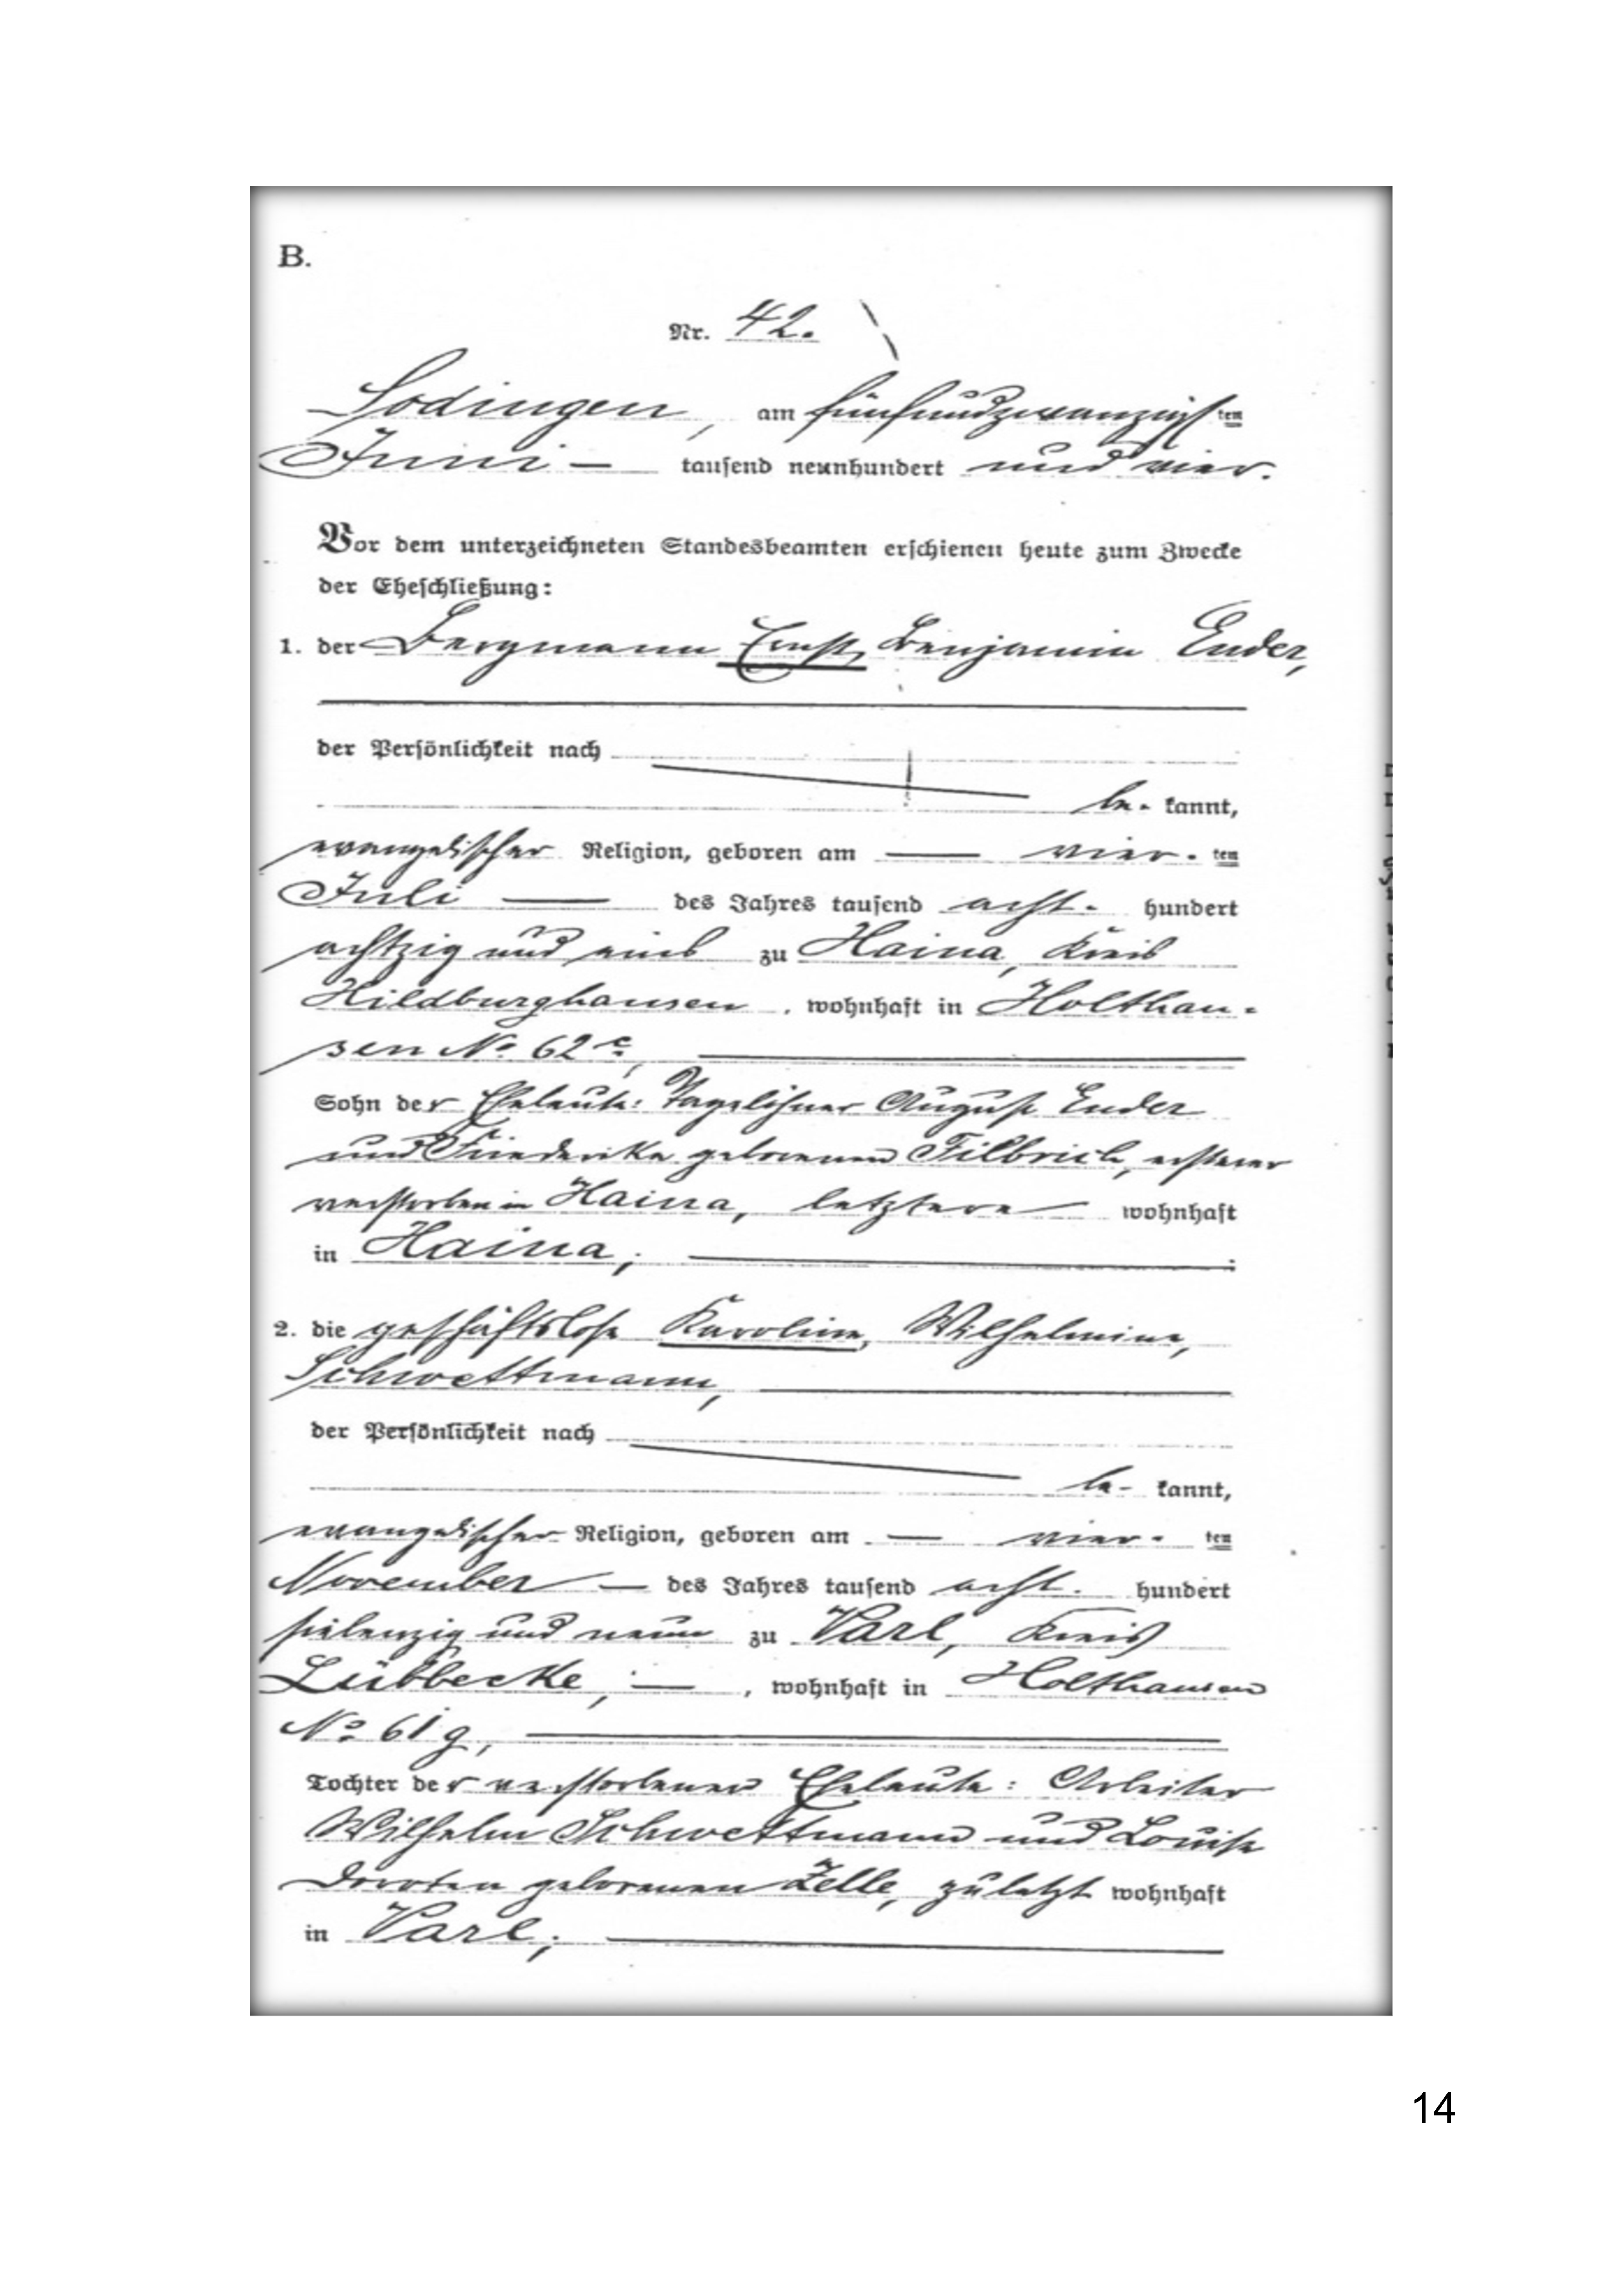 B.
Nr. 42.
Sodingen, am fünfundzwanzigsten
Juni — tausend neunhundert und vier.
Vor dem unterzeichneten Standesbeamten erschienen heute zum Zwecke
der Eheschließung:
1. der Bergmann Ernst, Benjamin Ender,
der Persönlichkeit nach
be- kannt,
evangelischer Religion, geboren am — vier-ten
Juli — des Jahres tausend acht- hundert
achtzig und eins zu Haina, Kreis
Hildburghausen, wohnhaft in Holthau-
sen No. 62 c,
Sohn der Eheleute: Tagelöhner August Ender
und Friederika geborenen Filbrich, ersterer
verstorben in Haina, letztere wohnhaft
in Haina;
2. die geschäftslose Karoline, Wilhelmine,
Schwettmann,
der Persönlichkeit nach
be- kannt,
evangelischer Religion, geboren am — vier- ten
November — des Jahres tausend acht- hundert
siebenzig und neun zu Varl, Kreis
Lübbecke, —, wohnhaft in Holthausen
No 61 g,
Tochter der verstorbenen Eheleute: Arbeiter
Wilhelm Schwettmann und Louise
geborenen Zelle, zuletzt wohnhaft
in Varl;
14